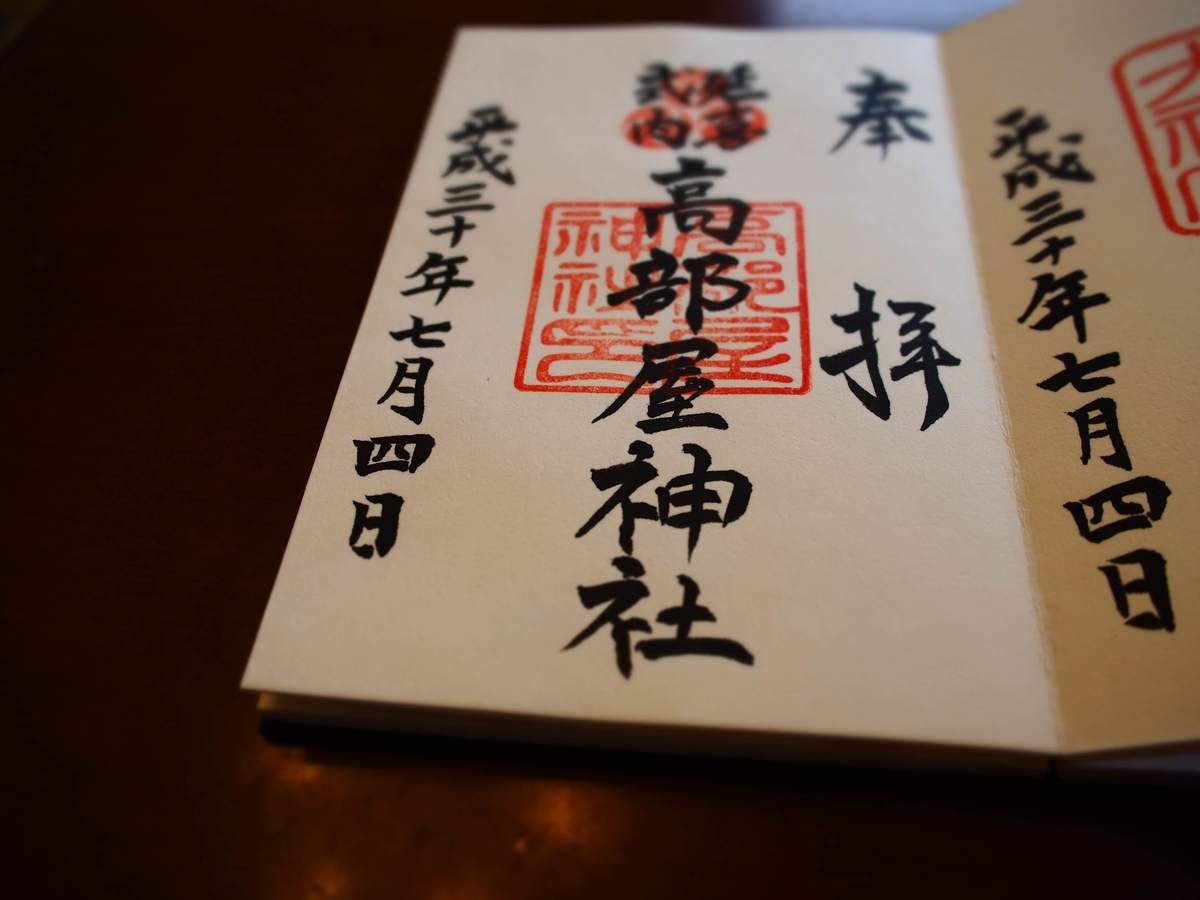 平成三十年七月四日
奉拝
延喜
式内
高部屋神社
高部屋
神社印
平成三十年七月四日